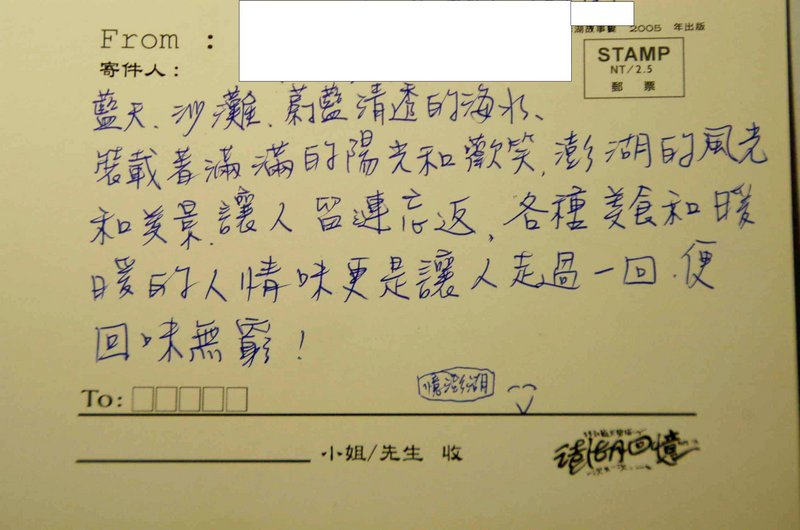 From :
寄件人:
湖故事藝 2005 年出版
STAMP
NT/2.5
郵 票
藍天、沙灘、蔚藍清透的海水、
裝載著滿滿的陽光和歡笑,澎湖的風光
和美景,讓人留連忘返,各種美食和暖
暖的人情味更是讓人走過一回,便
回味無窮!
憶澎湖
To:
小姐/先生 收
澎湖回憶